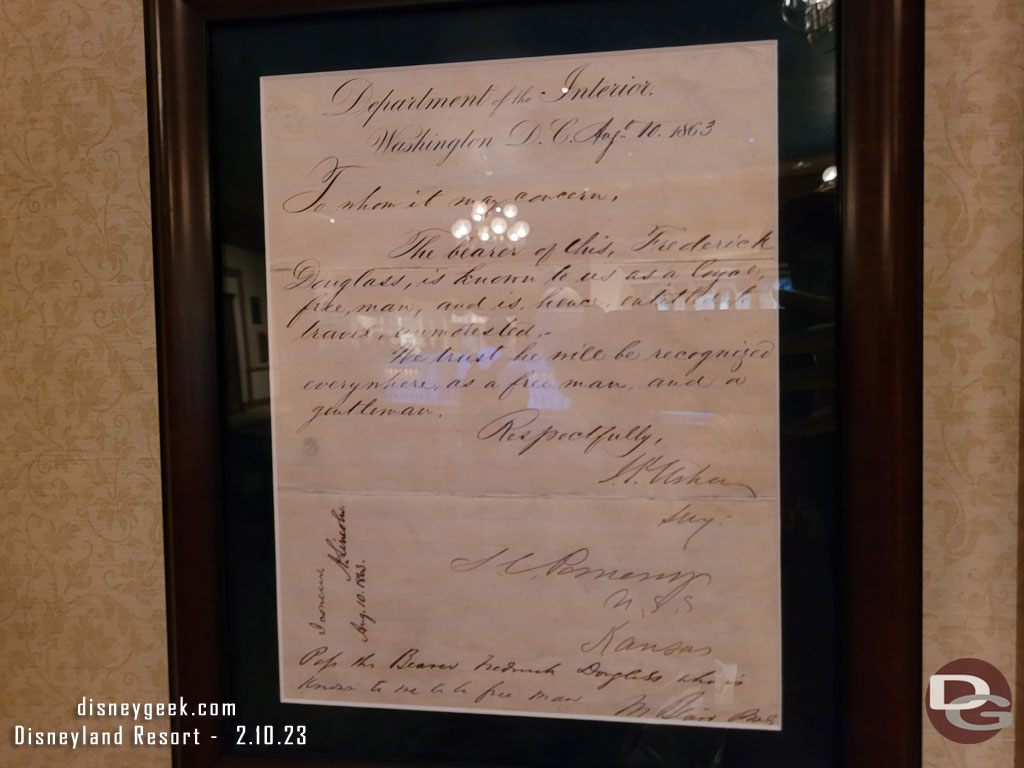 Department of the Interior.
Washington D. C. Augt. 10. 1863
To whom it may concern,
The bearer of this, Frederick
Douglass, is known to us as a loyal,
free, man, and is, hence, entitled to
travel, unmolested,.
We trust he will be recognized
everywhere, as a free man, and a
gentleman.
Respectfully,
J. P. Usher
Secy.
S C Pomeroy
U. S. S
Kansas
I concur,
A. Lincoln
Aug. 10. 1863.
Pass the Bearer Frederick Douglass who is
known to me to be free man
M Blair PMG
disneygeek.com
Disneyland Resort - 2.10.23
DG